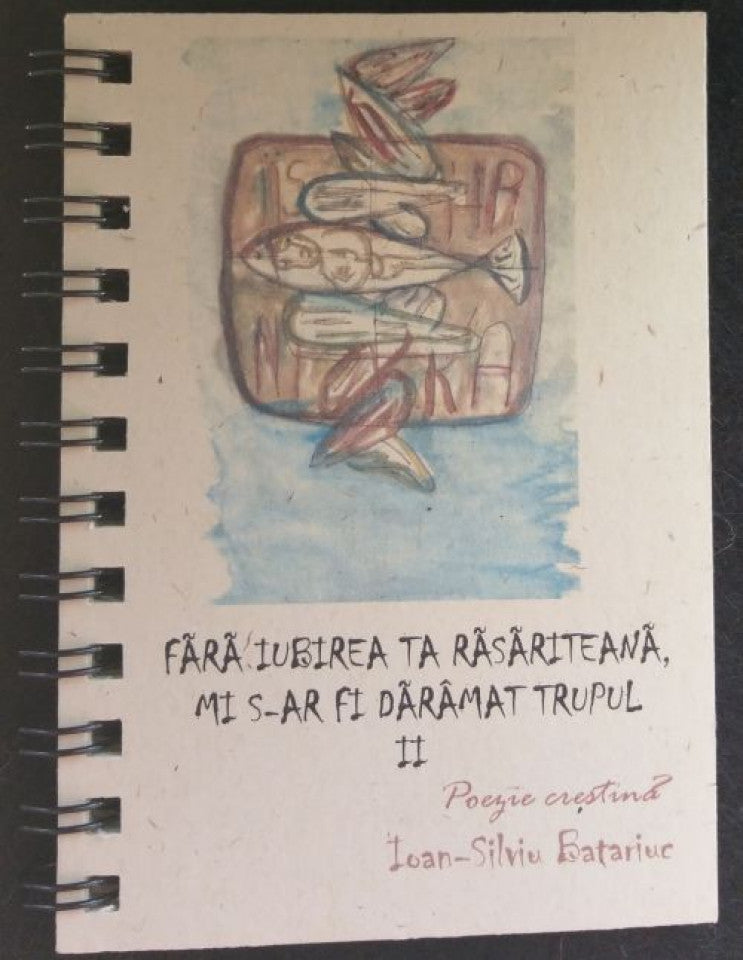 IS HR
NI KA
FÃRÃ IUBIREA TA RÃSÃRITEANÃ,
MI S-AR FI DÃRÂMAT TRUPUL
II
Poezie creștinã
Ioan-Silviu Batariuc